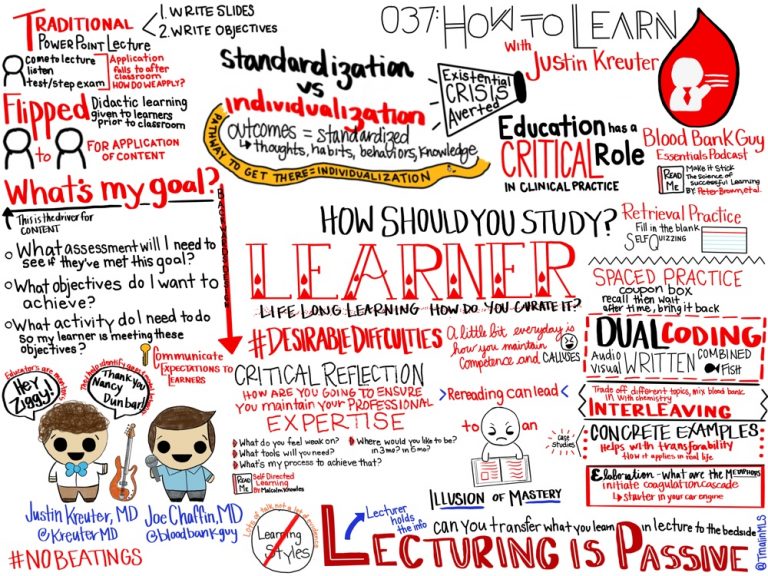 TRADITIONAL
POWERPOINT LECTURE
1. WRITE SLIDES
2. WRITE OBJECTIVES
Come to lecture
listen
test/step exam
Application
falls to after
classroom
HOW DO WE APPLY?
Flipped
Didactic learning
given to learners
prior to classroom
to
FOR APPLICATION
OF CONTENT
What's my goal?
This is the driver for
CONTENT
What assessment will I need to
see if they've met this goal?
What objectives do I want to
achieve?
What activity do I need to do
so my learner is meeting these
objectives?
Communicate
EXPECTATIONS TO
LEARNERS
HEY
ZIGGY!
Thank You
Nancy
Dunbar!
Justin Kreuter, MD
@KreuterMD
Joe Chaffin, MD
@bloodbankguy
#NOBEATINGS
Standardization
vs
individualization
outcomes = standardized
thoughts, habits, behaviors, knowledge
PATHWAY TO GET THERE = INDIVIDUALIZATION
Existential
CRISIS
Averted
037: HOW TO LEARN
With
Justin Kreuter
Education has a
CRITICAL Role
IN CLINICAL PRACTICE
Blood Bank Guy
Essentials Podcast
READ
ME
Make it Stick
The Science of
Successful Learning
BY: Peter Brown, et al.
HOW SHOULD YOU STUDY?
LEARNER
LIFE LONG LEARNING HOW DO YOU CURATE IT?
#DESIRABLE DIFFCULTIES
A little bit everyday is
how you maintain
competence and CALLUSES
CRITICAL REFLECTION
HOW ARE YOU GOING TO ENSURE
YOU MAINTAIN YOUR PROFESSIONAL
EXPERTISE
What do you feel weak on?
What tools will you need?
What's my process to achieve that?
Where would you like to be?
in 3mo? in 6mo?
READ
ME
Self Directed
Learning
By: Malcolm Knowles
Rereading can lead
to
an
ILLUSION OF MASTERY
Retrieval Practice
Fill in the blank
SELF QUIZZING
SPACED PRACTICE
coupon box
recall then wait...
after time, bring it back
DUAL CODING
Audio
Visual
WRITTEN
COMBINED
Fish
Trade off different topics, mix blood bank
IN with chemistry
INTERLEAVING
case
studies
CONCRETE EXAMPLES
Helps with transferability
How it applies in real life
Elaboration - what are the METAPHORS
initiate coagulation cascade
starter in your car engine
Lots of talk not a lot of evidence
Learning
Styles
Lecturer
holds
the info
can you transfer what you learn in lecture to the bedside
LECTURING IS PASSIVE
@TmalinMLS